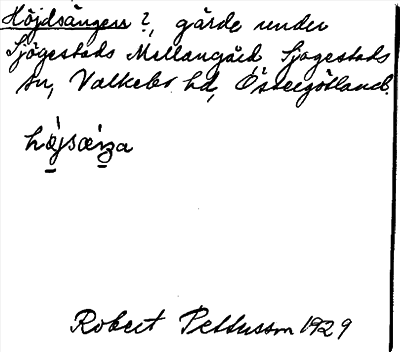 Höjdsängen ?, gärde under
Sjögestads Mellangård Sjögestads
sn, Valkebo hd, Östergötland.
hø̀jsæ̀ŋa
Robert Pettersson 1929